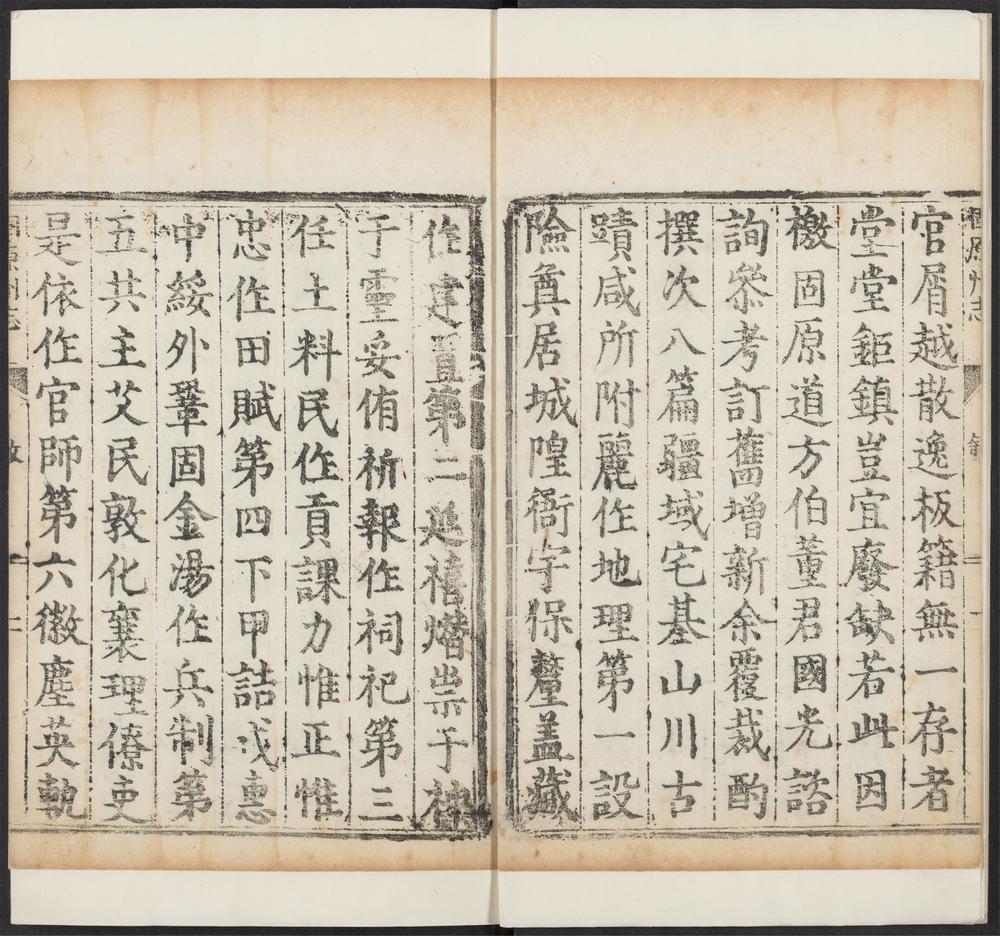 固原州志
官屑越散逸板籍無一存者
堂堂鉅鎮豈宜廢缺若此因
檄固原道方伯董君國光諮
詢叅考訂舊增新余覆裁酌
撰次八篇疆域宅基山川古
蹟咸所附麗作地理第一設
險奠居城隍衙宇保釐蓋藏
作建置第二延禧熸祟于神
于靈妥侑祈報作祠祀第三
任土料民作貢課力惟正惟
忠作田賦第四下甲詰戎憲
中綏外鞏固金湯作兵制第
五共主艾民敦化襄理僚吏
是依作官師第六徽塵英軌
固原州志
二